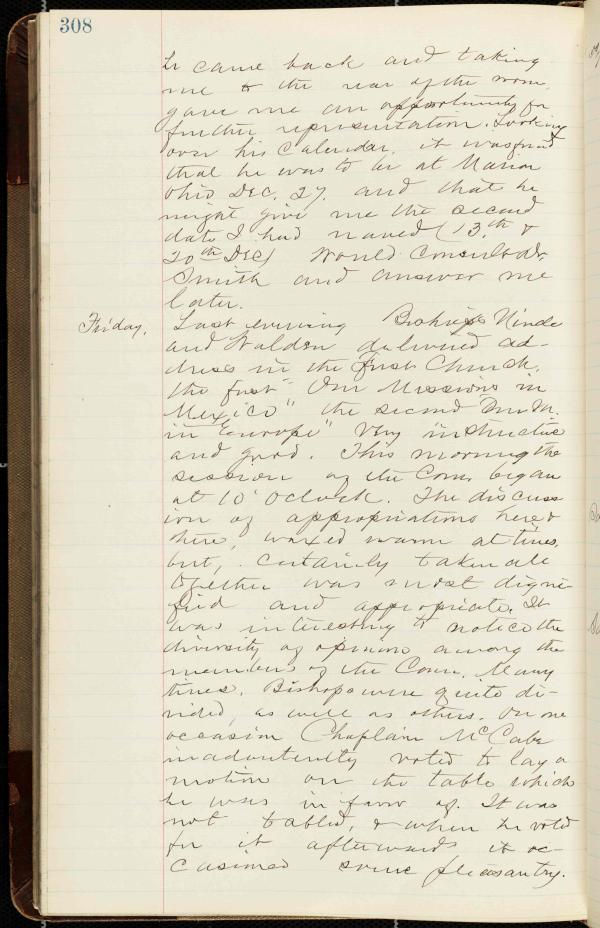 308
he came back and taking
me to the rear of the room,
gave me an opportunity for
further representation. Looking
over his Calendar, it was found
that he was to be at Marion
Ohio Dec. 27. and that he
might give me the second
date I had named (13.th &
20th Dec) Would Consult Dr.
Smith and answer me
later.
Friday.
Last evening Bishops Ninde
and Walden delivered ad-
dress in the First Church.
the first "Our Missions in
Mexico" the second "Our M.
in Europe" Very instructive
and good. This morning the
session of the Com. began
at 10 O'clock. The discuss
ion of appropriations here &
there, waxed warm at times,
but, certainly taken all
together was most digni-
fied and appropriate. It
was interesting to notice the
diversity of opinion among the
members of the Com. Many
times. Bishops were quite di-
vided, as well as others. On one
occasion Chaplain McCabe
inadvertently voted to lay a
motion on the table which
he was in favor of. It was
not tabled, & when he voted
for it afterwards it oc-
casioned some pleasantry.